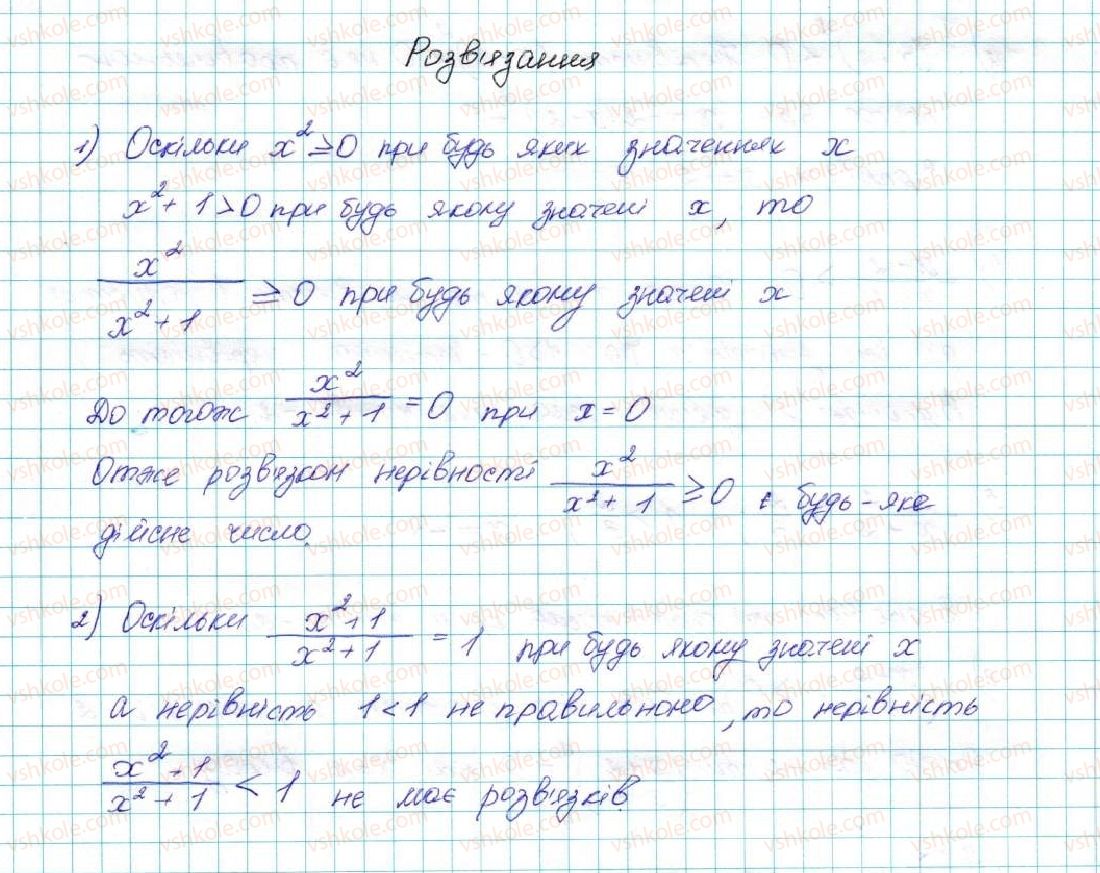 Розв'язання
1) Оскільки x² ≥ 0 при будь яких значеннях x
x² + 1 > 0 при будь якому значені x, то
x² / x² + 1 ≥ 0 при будь якому значені x
До тогож x² / x² + 1 = 0 при x = 0
Отже розв'язком нерівності x² / x² + 1 ≥ 0 є будь-яке
дійсне число.
2) Оскільки x² + 1 / x² + 1 = 1 при будь якому значені x
а нерівність 1 < 1 не правильною, то нерівність
x² + 1 / x² + 1 < 1 не має розв'язків